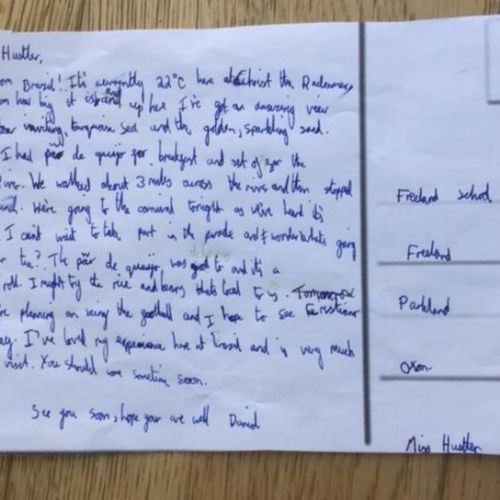 Hustler,
om Brazil! It's currently 22°C here at Christ the Redeemer
on how big it is and up here I've got an amazing view
inviting, turquoise sea and the golden, sparkling sand.
I had pão de queijo for breakfast and set of for the
We walked about 3 miles across the and then stopped
We're going to the carnival tonight as we've heard it's
I can't wait to take part in the parade and I wonder what's going
tea? The pão de queijo was and it's a
roll. I might try the rice and beans, that's local to us. Tomorrow
planning on seeing the football and I hope to see
I've loved my experience here at brazil and is very much
visit. You should come sometime soon.
See you soon, hope your are well David
Freeland school
Freeland
Parkland
Oxon.
Miss Hustler